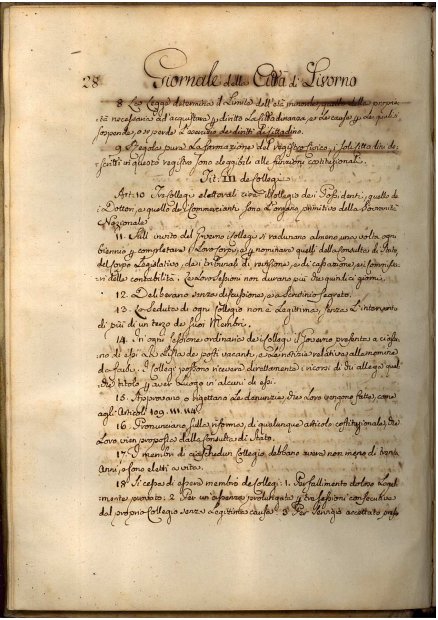 28 Giornale della Città di Livorno
8. La Legge determina il Limite dell'età minorile, quello della proprie-
tà necessaria ad acquistare p. diritto la Cittadinanza, e le cause p. le quali si
sospende, o si perde L'esercizio de diritti di Cittadino.
9. Regola pura la formazione del registro Civico, i soli Cittadini de-
scritti in questo registro sono eleggibili alle funzioni costituzionali.
Tit: III de Collegi
Art: 10 Tre Collegi elettorali cioè il Collegio de Possidenti, quello de
i Dotti, e quello de i Commercianti sono L'organo primitivo della Sovranità
Nazionale
11. Sull' invito del Governo i Collegi si radunano almeno una volta ogni
biennio p. completare i Loro corpi, e p. nominare quelli della consulta di Stato,
del Corpo Legislativo, dei tribunali di revisione, e di cassazione, e i Commissari
della contabilità. Le Loro Sessioni non durano più di quindici giorni.
12. Deliberano senza discussione, e a scrutinio segreto.
13. La seduta di ogni Collegio non è Legittima, senza L'intervento
di più di un terzo de suoi Membri.
14. In ogni sessione ordinaria de i collegi il Governo presenta a ciascu-
no di essi La Lista dei posti vacanti, e le notizie relative alle nomine
da farsi. I Collegi possono ricevere direttamente i ricorsi di chi allega qual-
che titolo p. aver Luogo in alcuni di essi.
15. Approvano o rigettano Le denunzie, che Loro vengono fatte, come
agli Articoli 109. 111. 114
16. Pronunciano sulla riforma di qualunque articolo costituzionale, che
Loro vien proposta dalla Consulta di Stato.
17. I membri di ciaschedun Collegio debbano avere non meno di trenta
Anni, e sono eletti a vita.
18. Si cessa di essere membro de Collegi: 1. Per fallimento doloso Legal-
mente provato: 2 Per un'assenza prolungata p. tre sessioni consecutive
dal proprio Collegio senza Legittima causa: 3 Per servizio accettato pres-